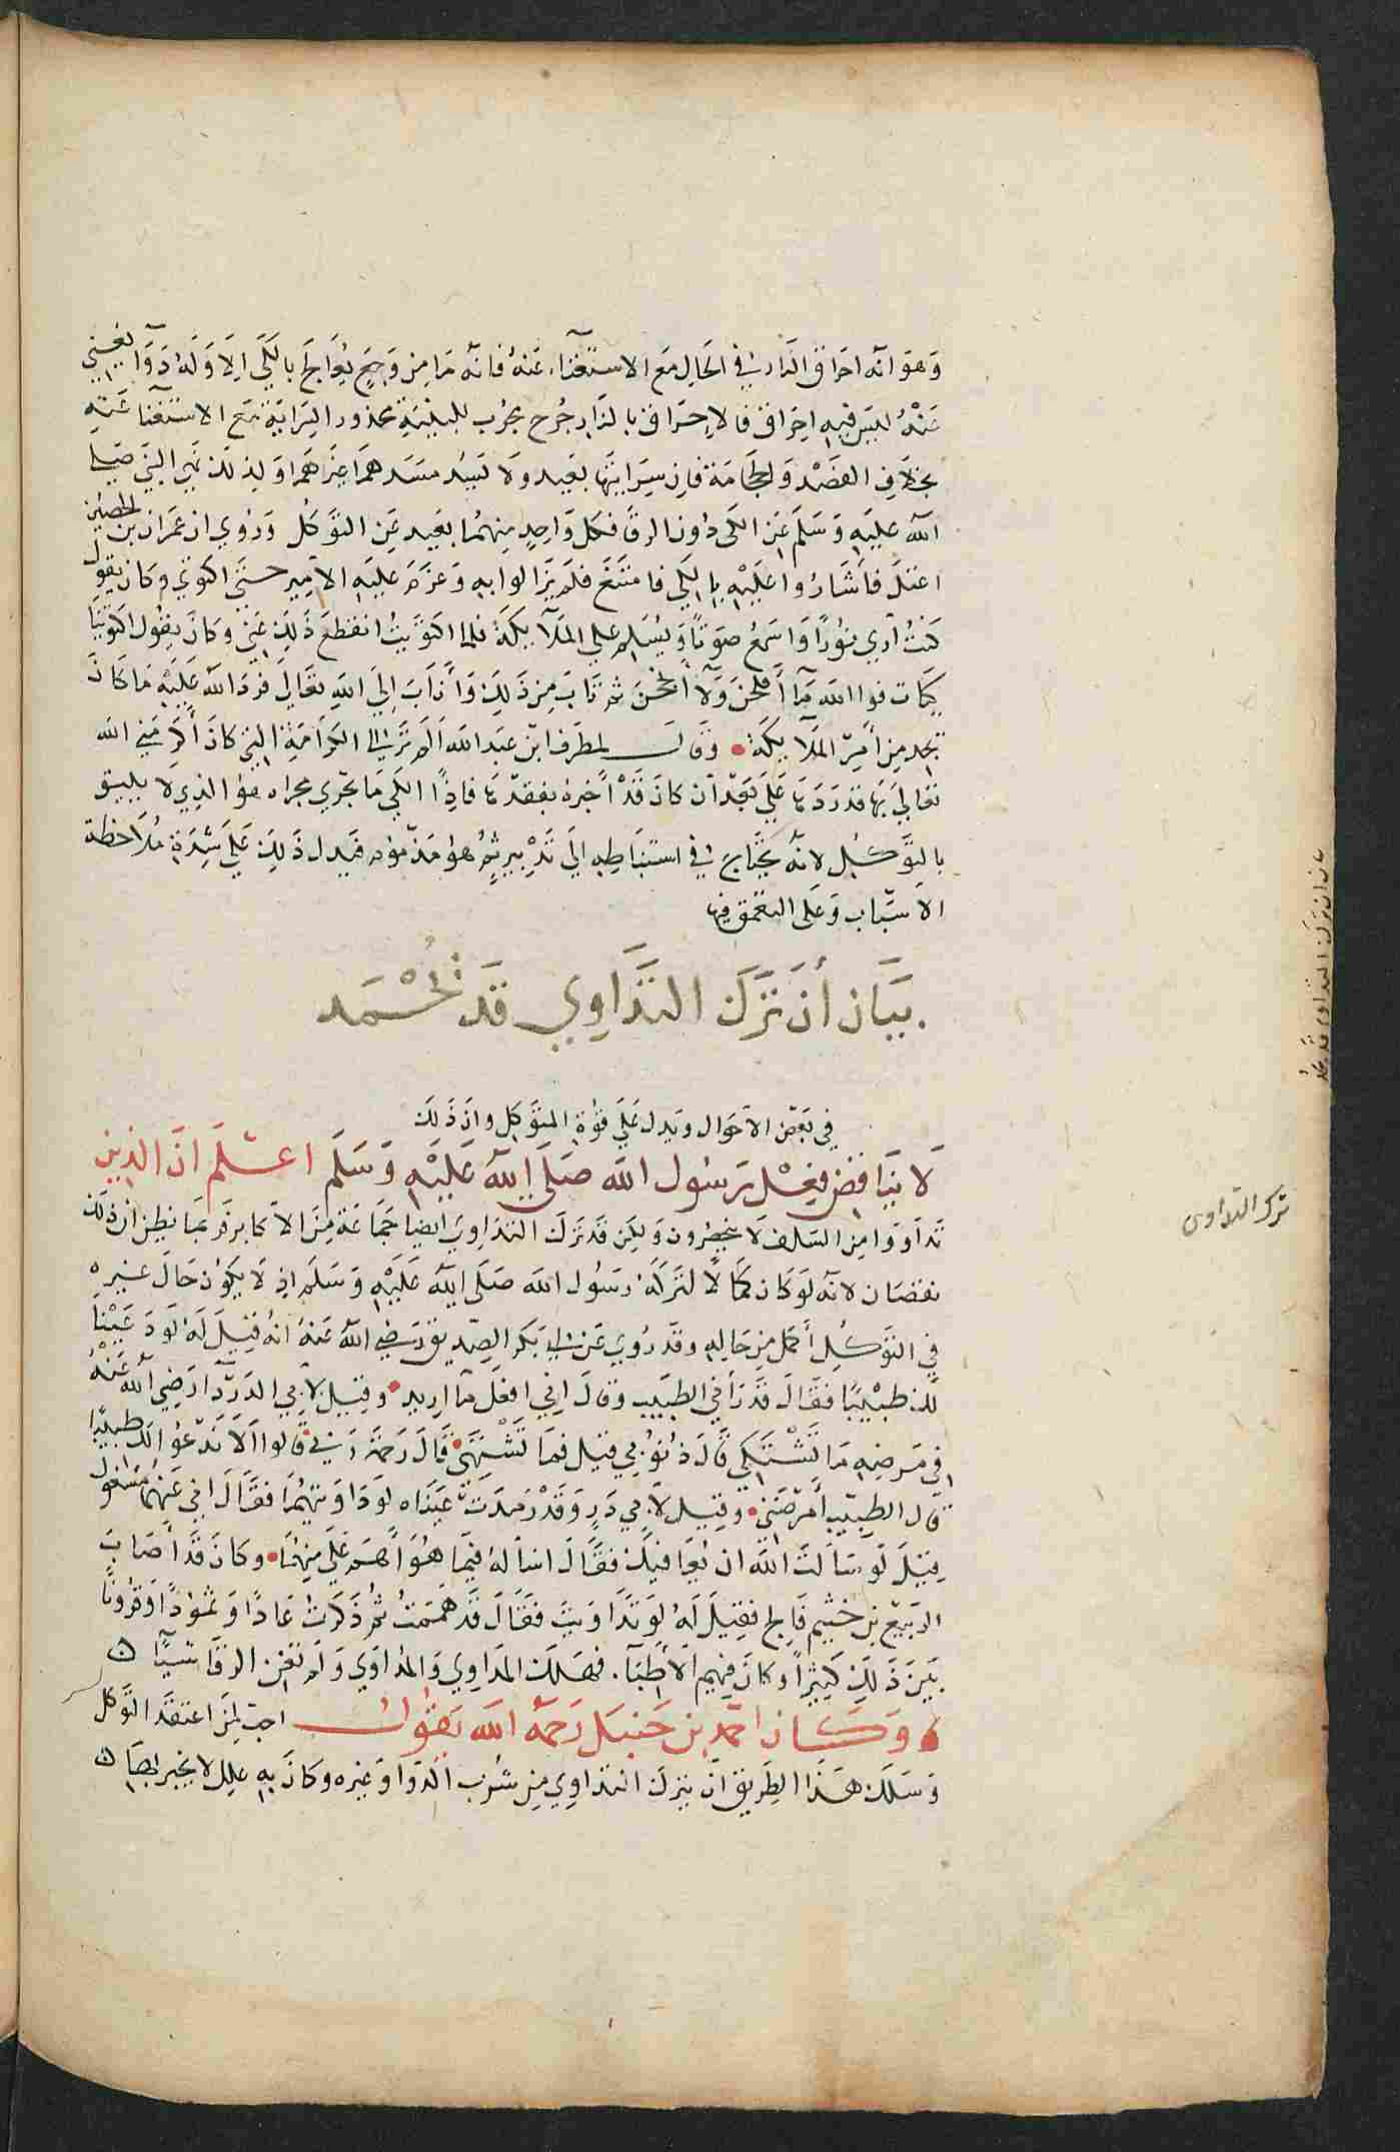 وَهوَ انّه احرَاق النّار في الحَال مَع الاستغنآء عَنهُ فانّه مَا مِن وَجَعٍ يُعَالج بالكَيّ الَا وَلَهُ دَوَآ يُغني
عَنْهُ ليسَ فيه احِرَاق فالاِحرَاق بالنَّار جُرح مخرب للبنيَةِ محذور السِّرَايَة مَع الاستغنا عَنه
بخلَاف الفَصْد وَالحجَامَة فان سِرَايتهَا بَعيد ولَا يَسُد مسَد همَا غيرَهمَا وَلذلكَ نَهي النبيّ صَلي
الله عليه وَسَلم عَن الكَى دُون الرقَا فكل وَاحِدٍ مِنهمَا بعَيد عَن التوَكل وَرُوي ان عمرَان بن الحصين
اعتل فاَشَارُوا عَلَيْهِ بالكَيّ فامتنَعَ فلم يزَالوا به وَعزَم عليَه الاَمير حتَى اكتوي وكان يقول
كنتُ اَرَي نوُرًا وَاسمعُ صَوتًا وَيسُلم علي الملَآيكَة فلما اكتوَيتُ انقطعَ ذَلِكَ عَني وكانَ يقُول اكتوَيْنَا
كيَات فوالله مَآ اَفلحنَ وَلَآ اَنجحنَ ثم تَابَ مِن ذَلِكَ وَأنَابَ اِليَ الله تعَالَي فردّ الله عَليَه مَا كانَ
يجد مِن اَمر الملَآيكَة • وَقَالــ لمطرف ابن عبَد الله اَلَم تَرَ الى الكرَامَة التي كانَ اَكرَمني الله
تعَاليَ بهَا قد رَدَهَا عَلَيّ بَعدَ اَن كانَ قَدْ اَخبرَهُ بفقدهَا فاذًا الكَي مَا يجَري مجراه هوَ الذِي لا يليق
بالتوَكُل لانّه يحتَاجَ في استنبَاطِه اليَ تَدْبيرٍ ثُمَّ هوَ مَذمُوم فيَدل ذَلِكَ عَلَي شِدَة مُلَاحَظة
الاسَبَاب وَعَلى التعَمق فيها
بَيَان أن تَرَكَ التَّدَاوِي قَد يُحْمَد
في بَعَض الاَحوَال ويَدل عَلَي قوُة التوَكل وانّ ذَلكَ
لَا ينَاقضُ فِعْل رَسُول الله صَلَى اللهُ عَلَيْهِ وَسَلَم اعْلَم اِنّ الذِين
تَدَاوَوا مِن السَلف لا ينحصِرُون وَلكِن قد تَرَكَ التدَاوِي ايضًا جَمَاعَة مِنَ الاَكابر فربما يظن ان ذلكَ
نقصَان لانّه لوَ كَان كمَالًا لتَرَكَهُ رَسُول الله صَلَى الله عَلَيْهِ وَسَلَم اذ لَا يكوُن حَال غيره
في التوَكُل أكمَل مِن حَاله وقد رُوي عَن ابي بَكر الصِديق رَضي الله عَنه انهُ قيلَ لهُ لوَ دَعَوْنَا
لكَ طبيْبًا فقَالَ قَد رَاَني الطبيَب وقالَ اِني افعَل مَا اريد • وقيَل لاَبي الدَردَا رَضِي الله عَنْهُ
في مَرضِه مَا تَشْتَكي قَالَ ذنوُبي قيَل فمَا تَشْتَهَي • قَالَ رَحمَة رَبي قَالوا اَلَا نَدعُو لكَ طبيبًا
قال الطبيَب اَمرَضَني • وقيَل لاَبي ذَرٍ وَقَدْ رَمِدَتْ عيَنَاه لوَ دَاوَيتهُمَا فقَالَ اني عَنهُمَا مَشغول
قيَلَ لَو سَاَلتَ الله ان يعَافيكَ فقَالَ اسَاَلهُ فيمَا هوَ اَهَم علَيّ مِنهمَا • وكانَ قَد اَصَابَ
الربيَع بن خثيم فَالج فقيلَ لَهُ لوَ تدَاوَيتَ فقَالَ قَد هَمَمتُ ثمُ ذَكَرتُ عَادًا وَثموُدًا وَقرُونًا
بيَن ذَلِكَ كَثِيرًا وكانَ فيهم الاَطِبَآ . فهَلكَ المدَاوِي وَالمدَاوَي وَلم تغن الرقَا شيئًا ٥
وكــان احمَد بن حَنبَل رَحمَه الله يَقوُل احب لمَن اعتقَد التوَكل
وَسَلكَ هَذَا الطِريق اَن يتركَ التدَاوِي مِن شُرب الدوَا وَغيره وكانَ به عِلل لا يخبر بهَا ٥
ترك التداوى
بيان ان ترك التداوى قد يحمد